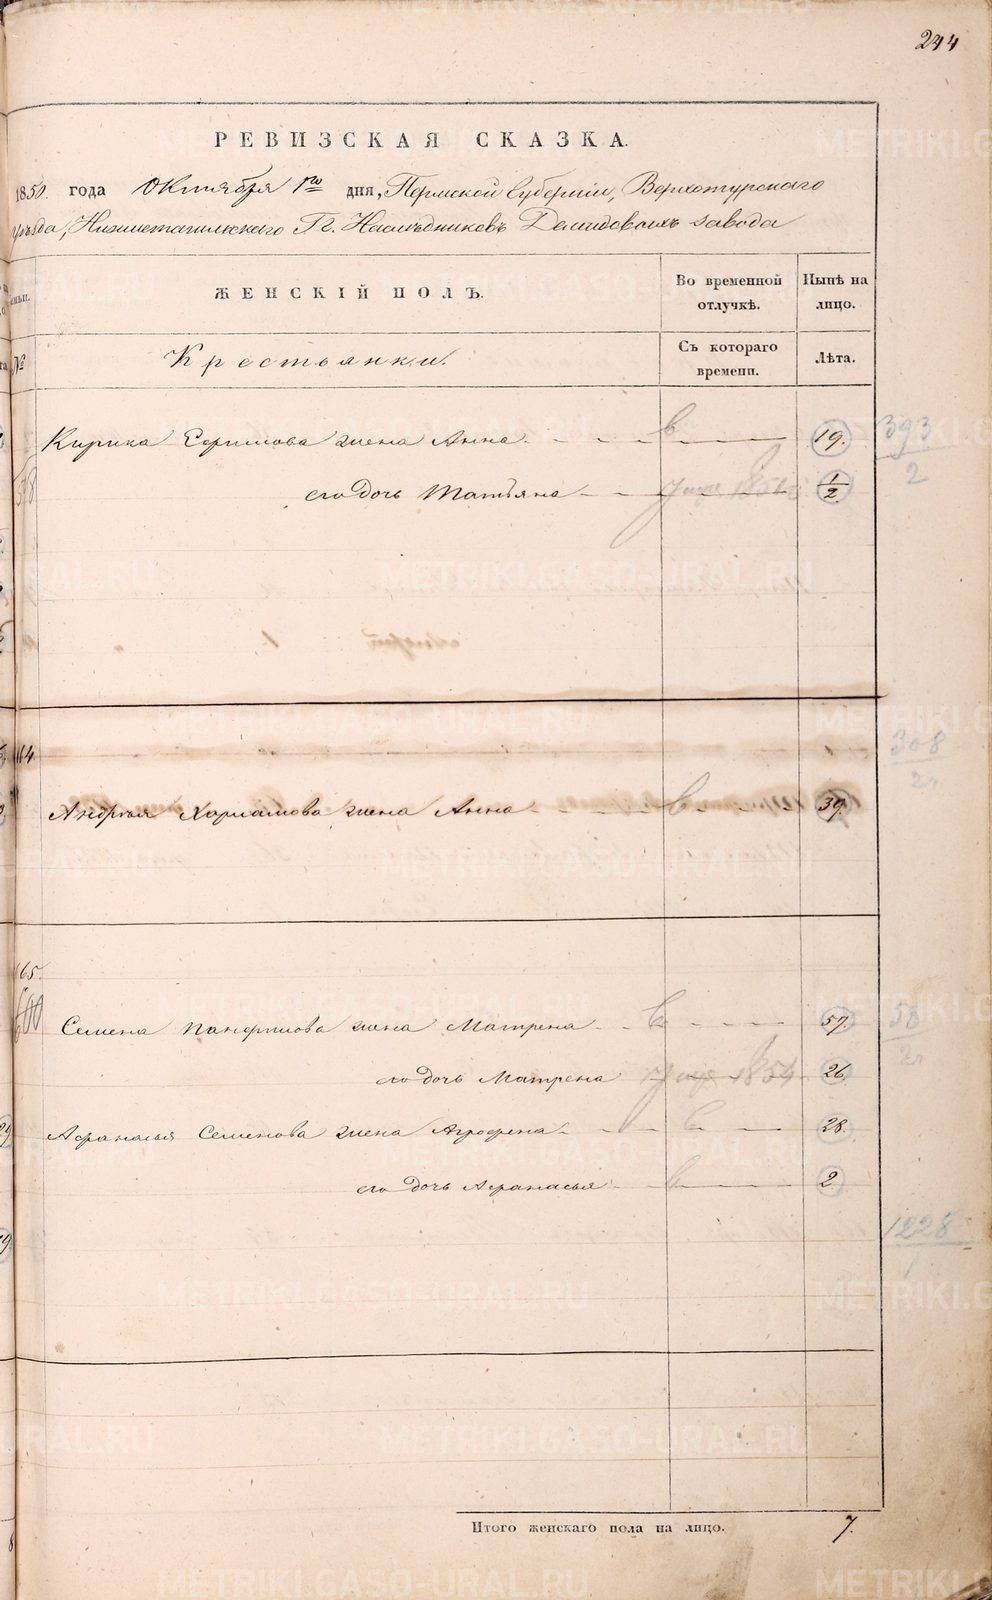 244
РЕВИЗСКАЯ СКАЗКА.
1850. года Октября 1го дня, Пермской Губерніи, Верхотурскаго
уѣзда, Нижнетагильскаго Гг. Наслѣдниковъ Демидовыхъ завода
ЖЕНСКІЙ ПОЛЪ.
Во временной отлучкѣ.
Нынѣ на лицо.
№
Крестьянки.
Съ котораго времени.
Лѣта.
Кирика Ефимова жена Анна 19. 393
2
его дочь Татьяна 1/2.
164.
308
Андрея Харламова жена Анна 39.
165.
600
Семена Панфилова жена Матрена 57. 58
его дочь Матрена 1854 26.
Афанасья Семенова жена Агрофена 28.
его дочь Афанасья 2.
1228
Итого женскаго пола на лицо. 7.
METRIKI.GASO-URAL.RU